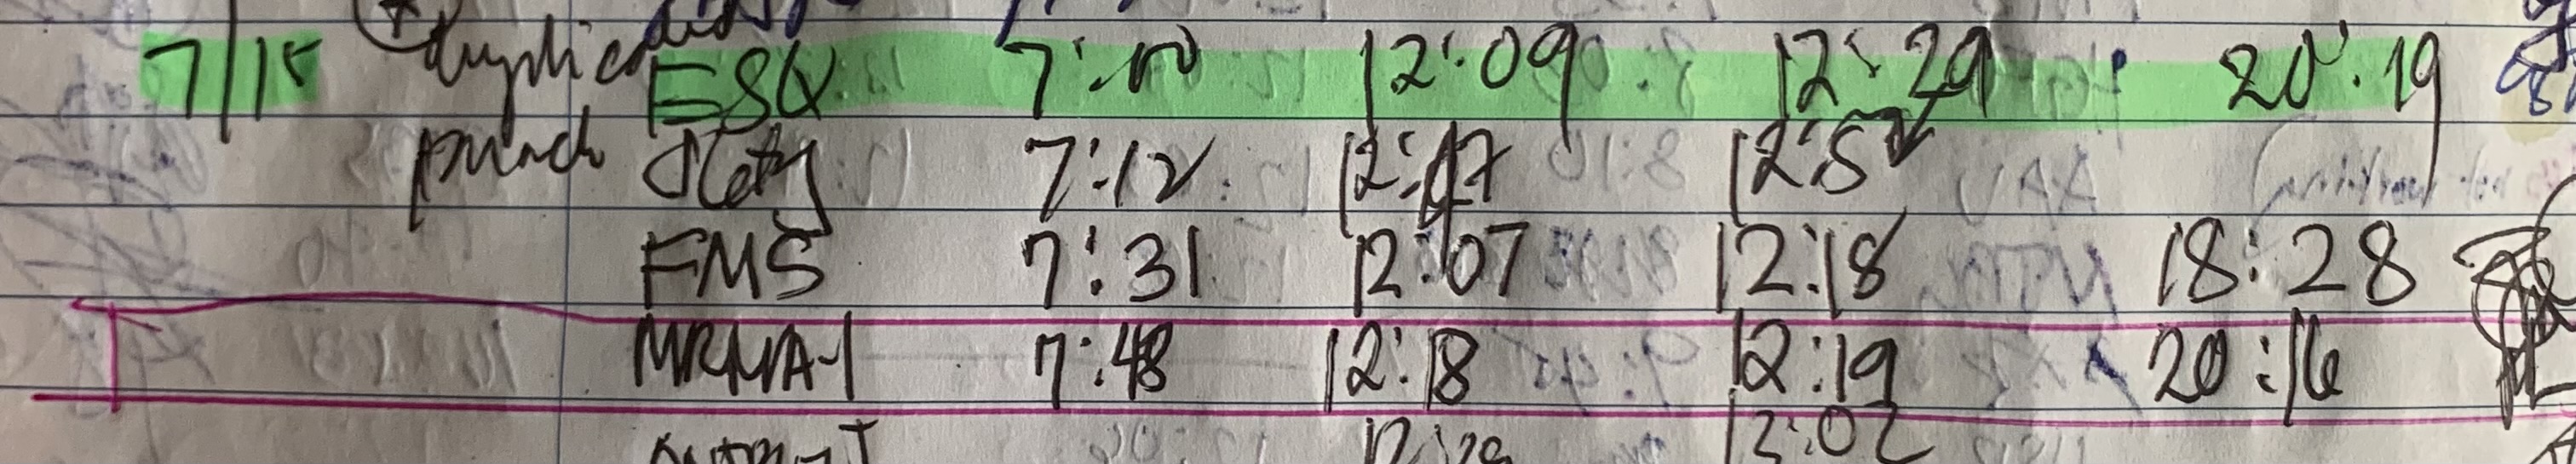 7/15 duplicated ESQ 7:10 12:09 12:29 20:19
punch 7:12 12:47 12:57
FMS 7:31 12:07 12:18 18:28
MRNA-1 7:48 12:18 12:19 20:16
12:02